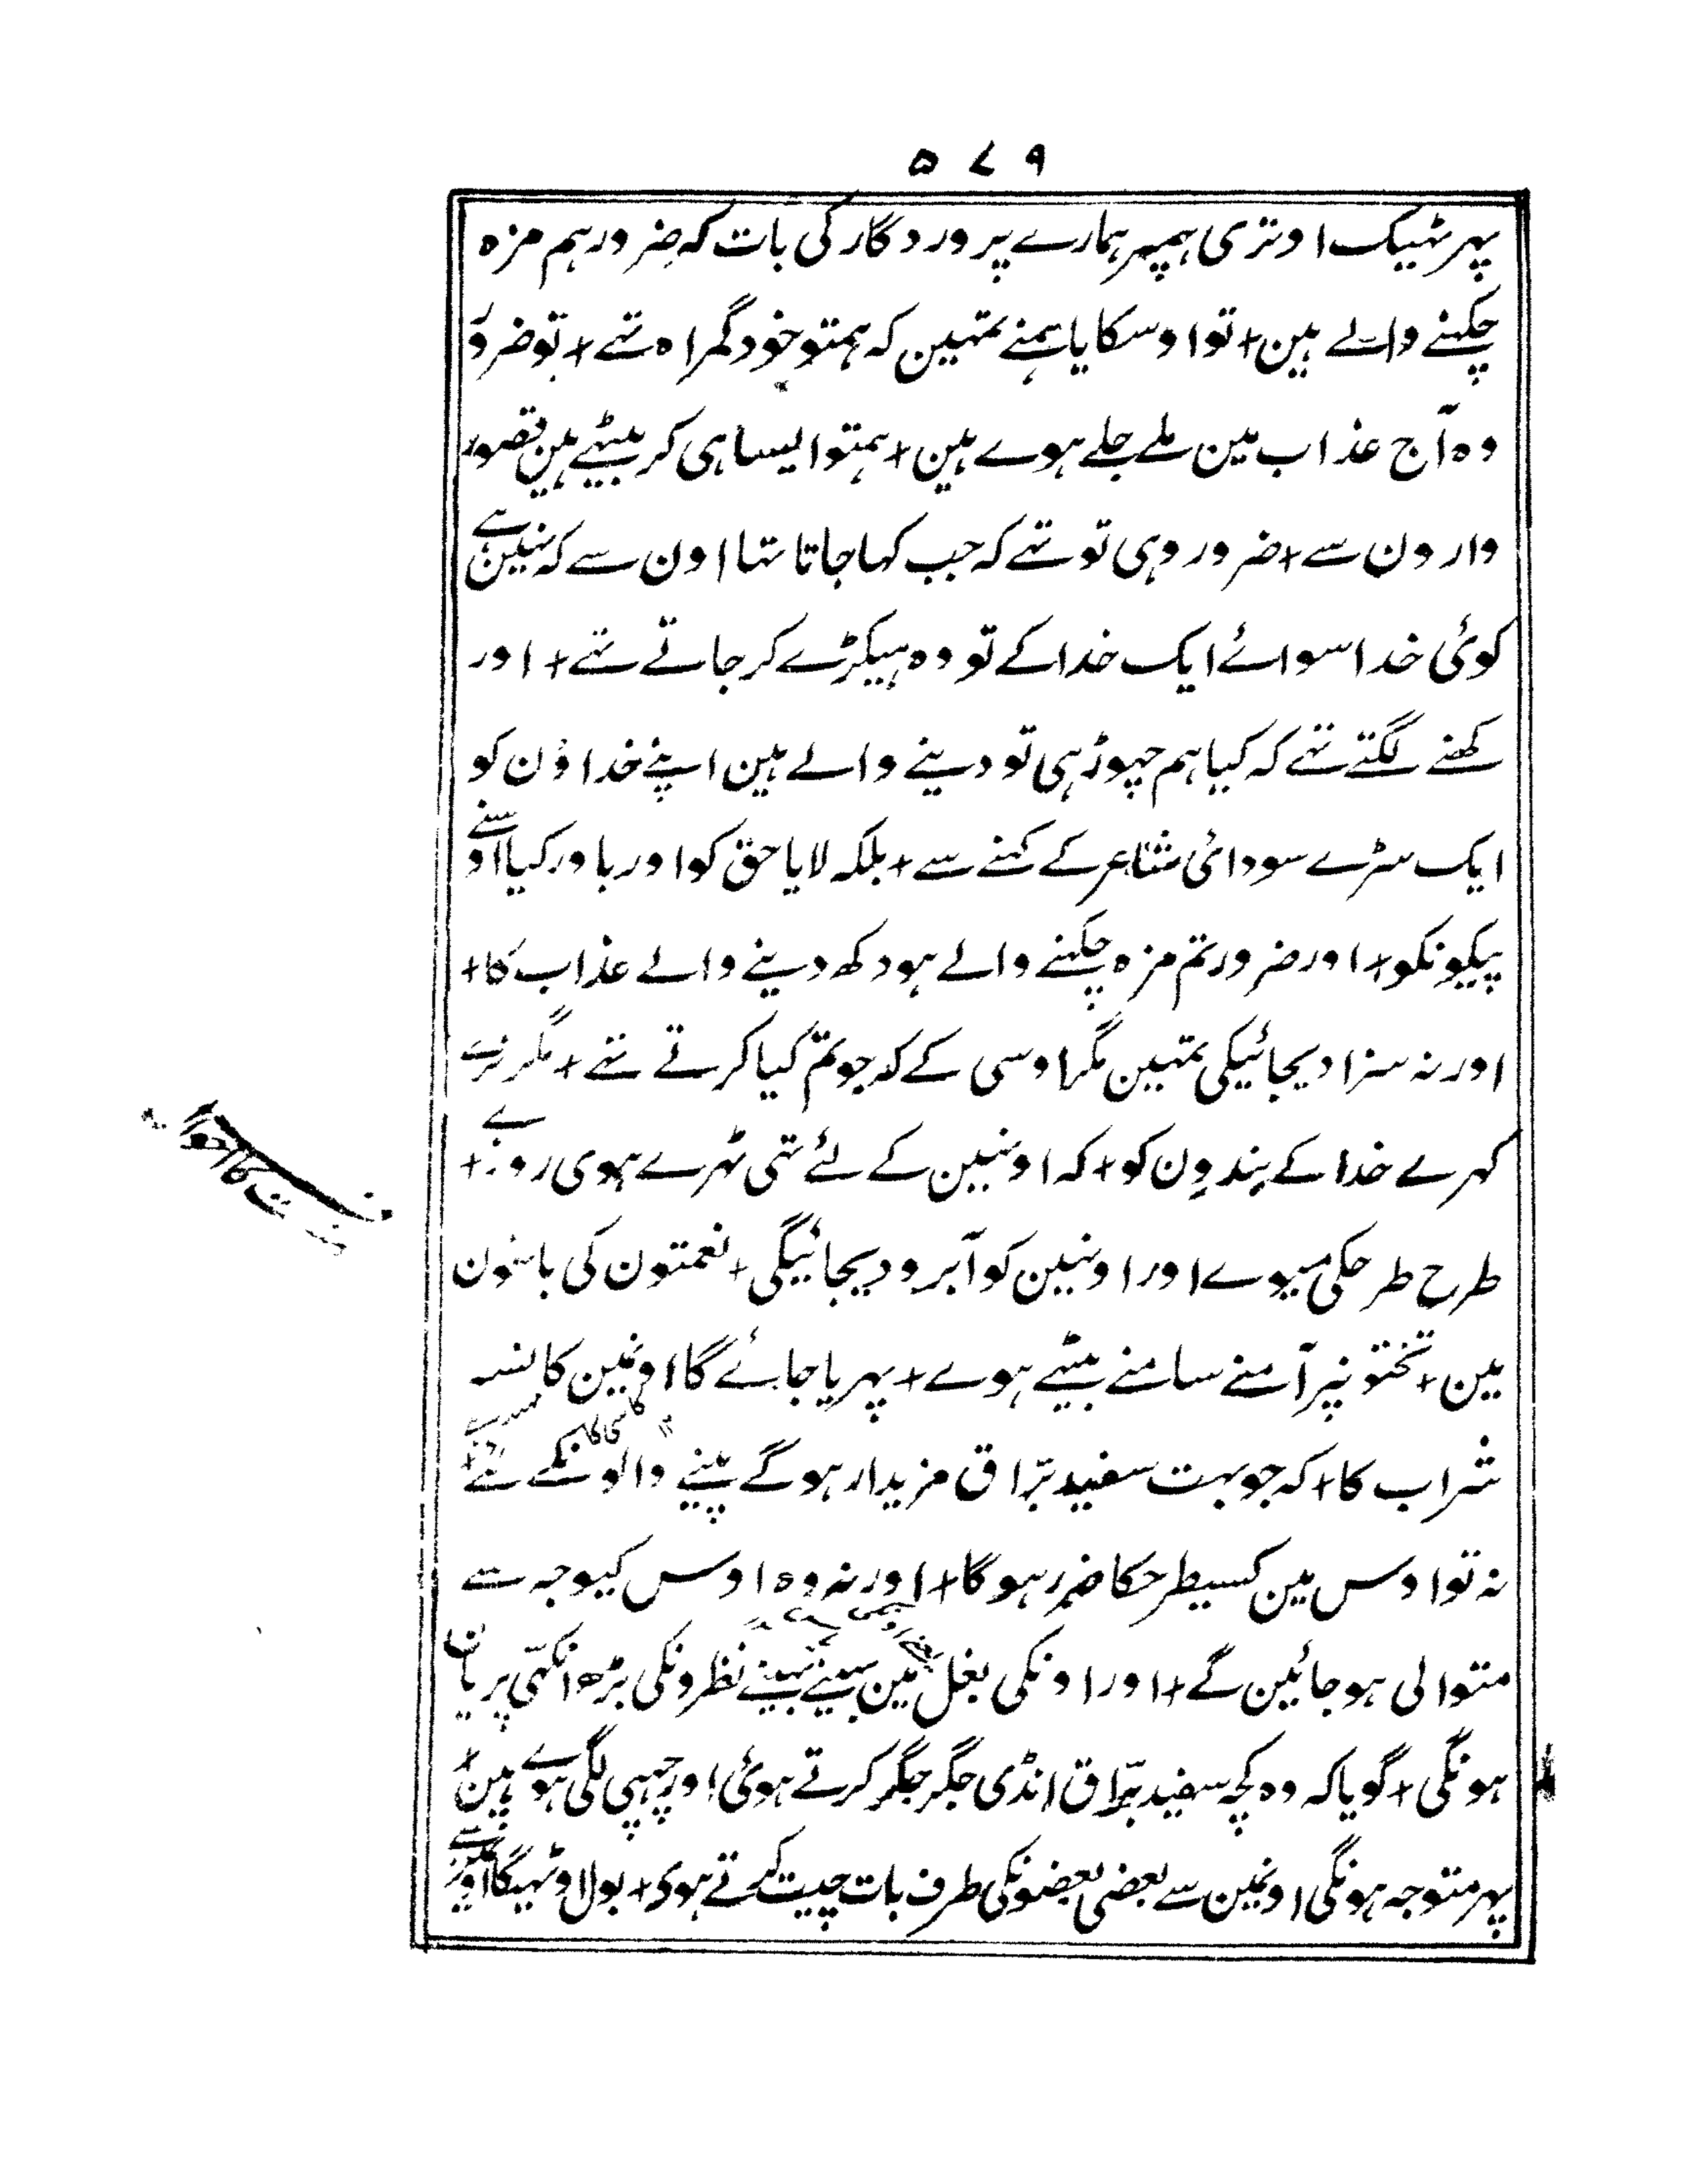 ۵۷۹
پہر ٹہیک اوتری ہمپہر ہمارے پروردگار کی بات کہ ضرور ہم مزہ
چکہنے والے ہین + تو اوسکایا ہمنے تمہین کہ ہمتو خود گمراہ تہے + تو ضرور
وہ آج عذاب مین ملے جلے ہوے ہین + ہمتو ایسا ہی کر بیٹہے ہین قصور
وارون سے + ضرور وہی تو تہے کہ جب کہا جاتا تہا اون سے کہ نہین ہے
کوئی خدا سوائے ایک خدا کے تو وہ ہیکڑے کر جاتے تہے + اور
کہنے لگتے تہے کہ کیا ہم چہوڑ ہی تو دینے والے ہین اپنے خداؤن کو
ایک سڑے سودائی شاعر کے کہنے سے + بلکہ لایا حق کو اور باور کیا اوسنے
پیکونکو + اور ضرور تم مزہ چکہنے والے ہو دکھ دینے والے عذاب کا +
اور نہ سزا دیجائیگی تمہین مگر اوسی کے کہ جو تم کیا کرتے تہے + مگر نرے
کہرے خدا کے بندون کو + کہ اونہین کے لئے تہی ٹہرے ہوی روزی +
طرح طرحکی میوے اور اونہین کو آبرو دیجائیگی + نعمتون کی باغون
مین + تختونپر آمنے سامنے بیٹہے ہوے + پہریا جائے گا اونمین کانسہ
شراب کا + کہ جو بہت سفید برّاق مزیدار ہوگے پینے والونکے لئے +
نہ تو اوس مین کسیطرحکا ضرر ہوگا + اور نہ وہ اوس کیوجہ سے
متوالی ہو جائین گے + اور اونکی بغل مین نیچے نیچے نظرونکی بڑھ انکہی پریان
ہونگی + گویا کہ وہ کچہ سفید برّاق انڈی جگر جگر کرتے ہوئی اور چہپی لگی ہوے ہین +
پہر متوجہ ہونگی اونمین سے بعضی بعضونکی طرف بات چیت کرتے ہوی + بولا وٹہیگا